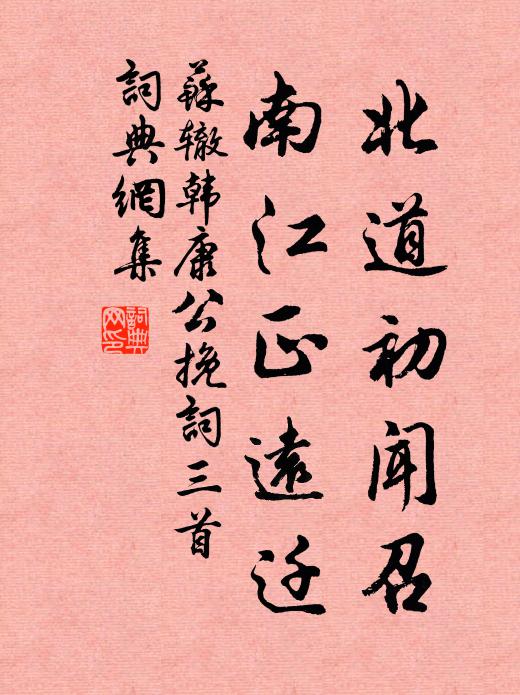 北道初闻召
南江正遠迁
蘇辙韩康公挽詞三首
詞典網集
詞典
网印